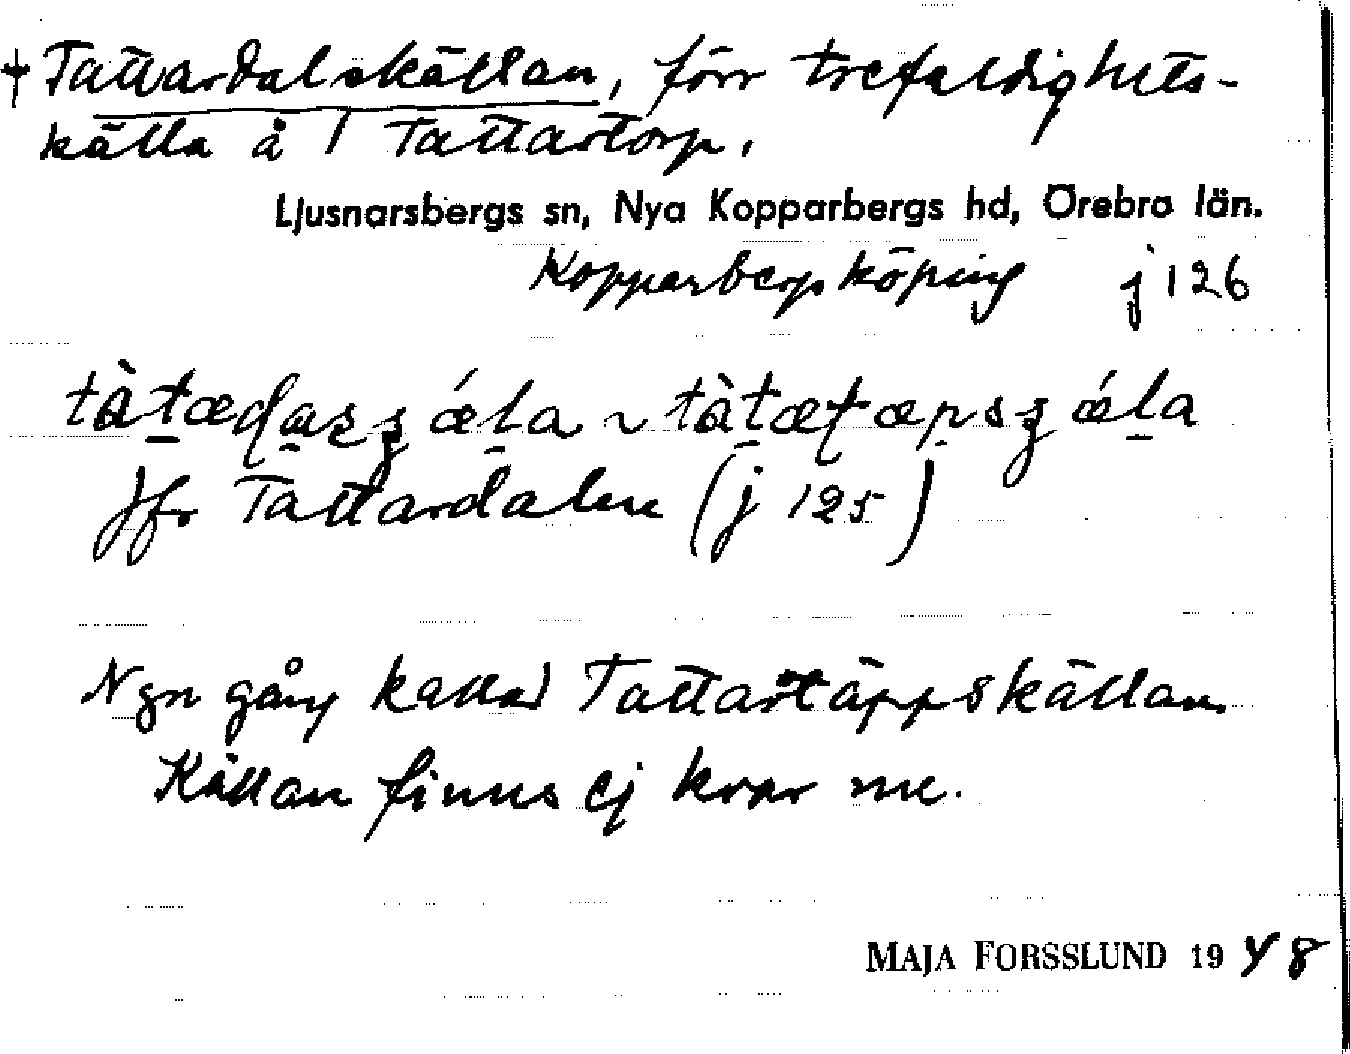 † Tattardalskällan, förr trefaldighets-
källa å / Tattartorp.
Ljusnarsbergs sn, Nya Kopparbergs hd, Örebro län.
Kopparbergs köping j 126
Jfr Tattardalen (j 125)
Ngn gång kallad Tattartäppskällan.
Källan finns ej kvar nu.
MAJA FORSSLUND 1948